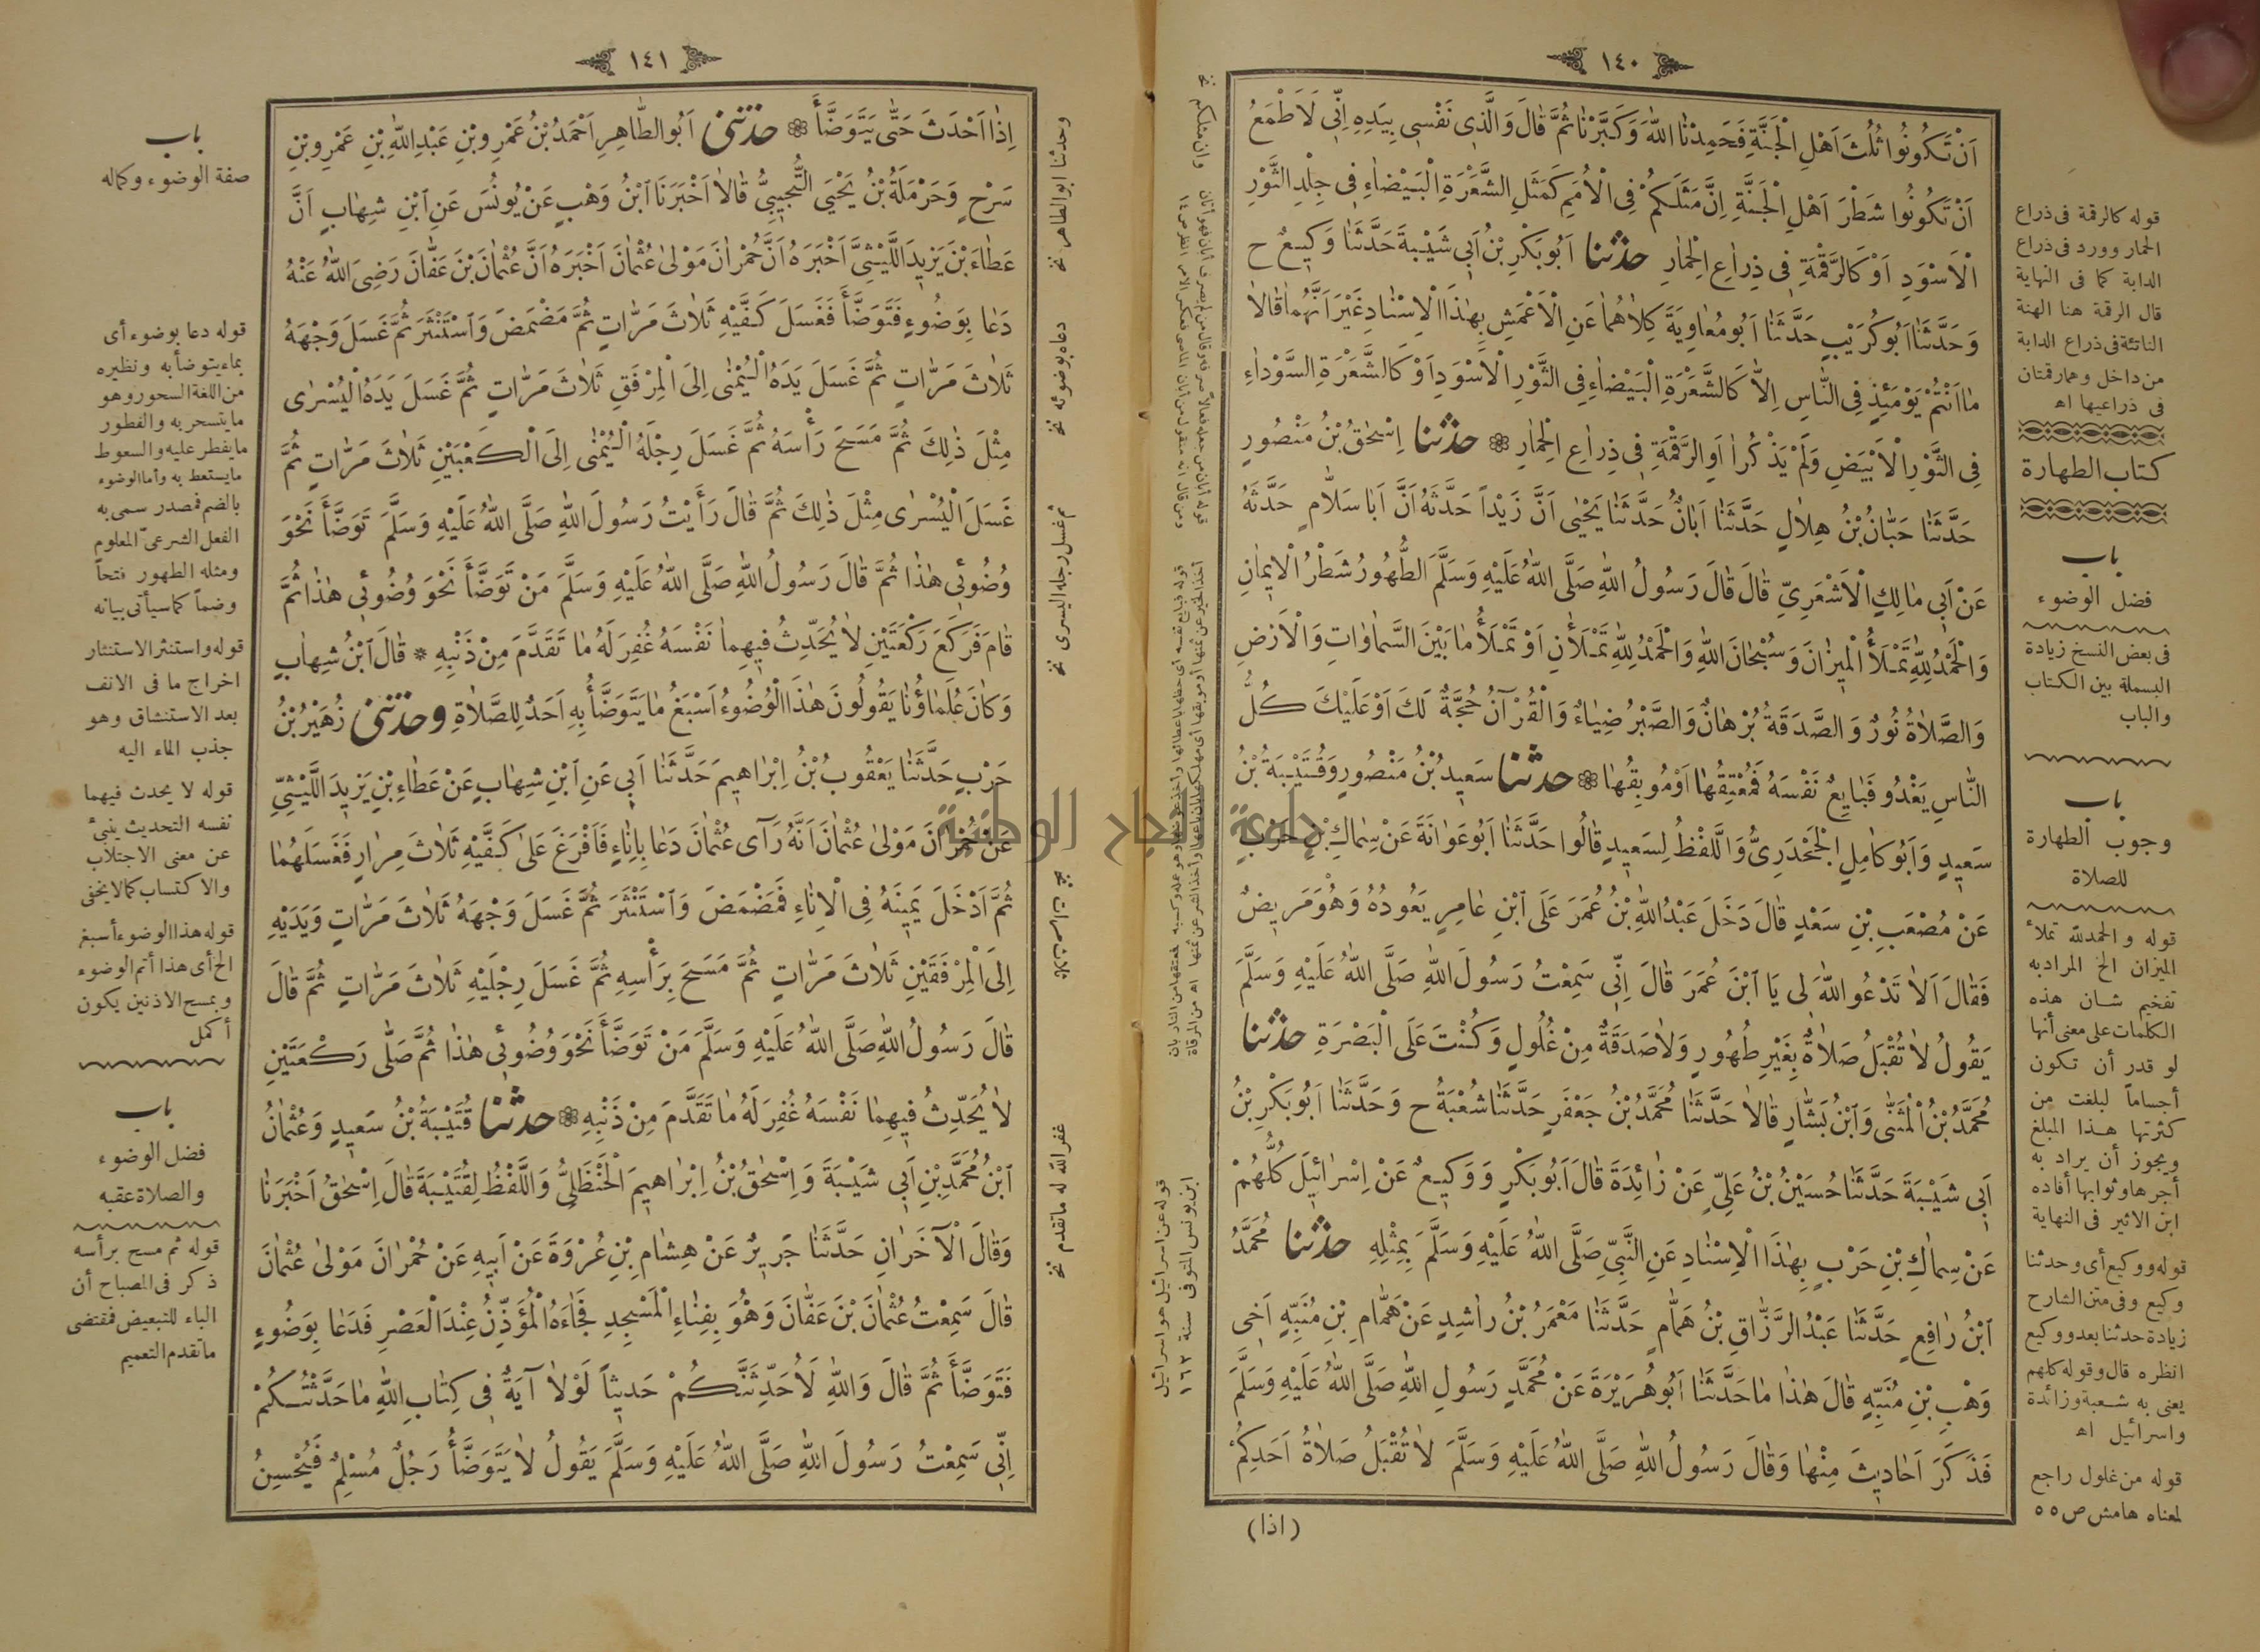 ١٤٠
اَنْ تَكُونُوا ثُلُثَ اَهْلِ الْجَنَّةِ فَحَمِدْنَا اللّٰهَ وَكَبَّرْنَا ثُمَّ قَالَ وَالَّذِى نَفْسِى بِيَدِهِ اِنِّى لَاَطْمَعُ
اَنْ تَكُونُوا شَطْرَ اَهْلِ الْجَنَّةِ اِنَّ مَثَلَكُمْ فِى الْاُمَمِ كَمَثَلِ الشَّعْرَةِ الْبَيْضَاءِ فِى جِلْدِ الثَّوْرِ
الْاَسْوَدِ اَوْ كَالرَّقْمَةِ فِى ذِرَاعِ الْحِمَارِ حدثنا اَبُوبَكْرِ بْنُ اَبِى شَيْبَةَ حَدَّثَنَا وَكِيعٌ ح
وَحَدَّثَنَا اَبُوكُرَيْبٍ حَدَّثَنَا اَبُومُعَاوِيَةَ كِلَاهُمَا عَنِ الْاَعْمَشِ بِهٰذَا الْاِسْنَادِ غَيْرَ اَنَّهُمَا قَالَا
مَا اَنْتُمْ يَوْمَئِذٍ فِى النَّاسِ اِلَّا كَالشَّعْرَةِ الْبَيْضَاءِ فِى الثَّوْرِ الْاَسْوَدِ اَوْ كَالشَّعْرَةِ السَّوْدَاءِ
فِى الثَّوْرِ الْاَبْيَضِ وَلَمْ يَذْكُرَا اَوِ الرَّقْمَةِ فِى ذِرَاعِ الْحِمَارِ ۞ حدثنا اِسْحٰقُ بْنُ مَنْصُورٍ
حَدَّثَنَا حَبَّانُ بْنُ هِلَالٍ حَدَّثَنَا اَبَانٌ حَدَّثَنَا يَحْيٰى اَنَّ زَيْداً حَدَّثَهُ اَنَّ اَبَا سَلَّامٍ حَدَّثَهُ
عَنْ اَبِى مَالِكٍ الْاَشْعَرِىِّ قَالَ قَالَ رَسُولُ اللّٰهِ صَلَّى اللّٰهُ عَلَيْهِ وَسَلَّمَ الطُّهُورُ شَطْرُ الْاِيمَانِ
وَالْحَمْدُ لِلّٰهِ تَمْلَأُ الْمِيزَانَ وَسُبْحَانَ اللّٰهِ وَالْحَمْدُ لِلّٰهِ تَمْلَأَنِ اَوْ تَمْلَأُ مَا بَيْنَ السَّمَاوَاتِ وَالْاَرْضِ
وَالصَّلَاةُ نُورٌ وَالصَّدَقَةُ بُرْهَانٌ وَالصَّبْرُ ضِيَاءٌ وَالْقُرْآنُ حُجَّةٌ لَكَ اَوْ عَلَيْكَ كُلُّ
النَّاسِ يَغْدُو فَبَايِعٌ نَفْسَهُ فَمُعْتِقُهَا اَوْ مُوبِقُهَا ۞ حدثنا سَعِيدُ بْنُ مَنْصُورٍ وَقُتَيْبَةُ بْنُ
سَعِيدٍ وَاَبُو كَامِلٍ الْجَحْدَرِىُّ وَاللَّفْظُ لِسَعِيدٍ قَالُوا حَدَّثَنَا اَبُوعَوَانَةَ عَنْ سِمَاكِ بْنِ حَرْبٍ
عَنْ مُصْعَبِ بْنِ سَعْدٍ قَالَ دَخَلَ عَبْدُ اللّٰهِ بْنُ عُمَرَ عَلَى ابْنِ عَامِرٍ يَعُودُهُ وَهُوَ مَرِيضٌ
فَقَالَ اَلَا تَدْعُو اللّٰهَ لِى يَا ابْنَ عُمَرَ قَالَ اِنِّى سَمِعْتُ رَسُولَ اللّٰهِ صَلَّى اللّٰهُ عَلَيْهِ وَسَلَّمَ
يَقُولُ لَا تُقْبَلُ صَلَاةٌ بِغَيْرِ طُهُورٍ وَلَا صَدَقَةٌ مِنْ غُلُولٍ وَكُنْتَ عَلَى الْبَصْرَةِ حدثنا
مُحَمَّدُ بْنُ الْمُثَنّٰى وَابْنُ بَشَّارٍ قَالَا حَدَّثَنَا مُحَمَّدُ بْنُ جَعْفَرٍ حَدَّثَنَا شُعْبَةُ ح وَحَدَّثَنَا اَبُوبَكْرِ بْنُ
اَبِى شَيْبَةَ حَدَّثَنَا حُسَيْنُ بْنُ عَلِىٍّ عَنْ زَائِدَةَ قَالَ اَبُوبَكْرٍ وَوَكِيعٌ عَنْ اِسْرَائِيلَ كُلُّهُمْ
عَنْ سِمَاكِ بْنِ حَرْبٍ بِهٰذَا الْاِسْنَادِ عَنِ النَّبِىِّ صَلَّى اللّٰهُ عَلَيْهِ وَسَلَّمَ بِمِثْلِهِ حدثنا مُحَمَّدُ
ابْنُ رَافِعٍ حَدَّثَنَا عَبْدُ الرَّزَّاقِ بْنُ هَمَّامٍ حَدَّثَنَا مَعْمَرُ بْنُ رَاشِدٍ عَنْ هَمَّامِ بْنِ مُنَبِّهٍ اَخِى
وَهْبِ بْنِ مُنَبِّهٍ قَالَ هٰذَا مَا حَدَّثَنَا اَبُوهُرَيْرَةَ عَنْ مُحَمَّدٍ رَسُولِ اللّٰهِ صَلَّى اللّٰهُ عَلَيْهِ وَسَلَّمَ
فَذَكَرَ اَحَادِيثَ مِنْهَا وَقَالَ رَسُولُ اللّٰهِ صَلَّى اللّٰهُ عَلَيْهِ وَسَلَّمَ لَا تُقْبَلُ صَلَاةُ اَحَدِكُمْ
(اذا)
قوله كالرقمة فى ذراع
الحمار وورد فى ذراع
الدابة كما فى النهاية
قال الرقمة هنا الهنة
الناتئة فى ذراع الدابة
من داخل وهما رقمتان
فى ذراعيها اه
كتاب الطهارة
باب
فضل الوضوء
فى بعض النسخ زيادة
البسملة بين الكتاب
والباب
باب
وجوب الطهارة
للصلاة
قوله والحمدلله تملأ
الميزان الخ المراد به
تفخيم شان هذه
الكلمات على معنى أنها
لو قدر أن تكون
أجساماً لبلغت من
كثرتها هذا المبلغ
ويجوز أن يراد به
أجرها وثوابها أفاده
ابن الاثير فى النهاية
قوله ووكيع أى وحدثنا
وكيع وفى متن الشارح
زيادة حدثنا بعد ووكيع
انظره قال وقوله كلهم
يعنى به شعبة وزائدة
واسرائيل اه
قوله من غلول راجع
لمعناه هامش ص ٥٥
وان مثلكم
قوله عن اسرائيل هو اسرائيل
ابن يونس المتوفى سنة ١٦٢
جامعة النجاح الوطنية
١٤١
اِذَا اَحْدَثَ حَتّٰى يَتَوَضَّأَ ۞ حدثنى اَبُو الطَّاهِرِ اَحْمَدُ بْنُ عَمْرِو بْنِ عَبْدِ اللّٰهِ بْنِ عَمْرِو بْنِ
سَرْحٍ وَحَرْمَلَةُ بْنُ يَحْيَى التُّجِيبِىُّ قَالَا اَخْبَرَنَا ابْنُ وَهْبٍ عَنْ يُونُسَ عَنِ ابْنِ شِهَابٍ اَنَّ
عَطَاءَ بْنَ يَزِيدَ اللَّيْثِىَّ اَخْبَرَهُ اَنَّ حُمْرَانَ مَوْلٰى عُثْمَانَ اَخْبَرَهُ اَنَّ عُثْمَانَ بْنَ عَفَّانَ رَضِىَ اللّٰهُ عَنْهُ
دَعَا بِوَضُوءٍ فَتَوَضَّأَ فَغَسَلَ كَفَّيْهِ ثَلَاثَ مَرَّاتٍ ثُمَّ مَضْمَضَ وَاسْتَنْثَرَ ثُمَّ غَسَلَ وَجْهَهُ
ثَلَاثَ مَرَّاتٍ ثُمَّ غَسَلَ يَدَهُ الْيُمْنٰى اِلَى الْمِرْفَقِ ثَلَاثَ مَرَّاتٍ ثُمَّ غَسَلَ يَدَهُ الْيُسْرٰى
مِثْلَ ذٰلِكَ ثُمَّ مَسَحَ رَأْسَهُ ثُمَّ غَسَلَ رِجْلَهُ الْيُمْنٰى اِلَى الْكَعْبَيْنِ ثَلَاثَ مَرَّاتٍ ثُمَّ
غَسَلَ الْيُسْرٰى مِثْلَ ذٰلِكَ ثُمَّ قَالَ رَأَيْتُ رَسُولَ اللّٰهِ صَلَّى اللّٰهُ عَلَيْهِ وَسَلَّمَ تَوَضَّأَ نَحْوَ
وُضُوئِى هٰذَا ثُمَّ قَالَ رَسُولُ اللّٰهِ صَلَّى اللّٰهُ عَلَيْهِ وَسَلَّمَ مَنْ تَوَضَّأَ نَحْوَ وُضُوئِى هٰذَا ثُمَّ
قَامَ فَرَكَعَ رَكْعَتَيْنِ لَا يُحَدِّثُ فِيهِمَا نَفْسَهُ غُفِرَ لَهُ مَا تَقَدَّمَ مِنْ ذَنْبِهِ * قَالَ ابْنُ شِهَابٍ
وَكَانَ عُلَمَاؤُنَا يَقُولُونَ هٰذَا الْوُضُوءُ اَسْبَغُ مَا يَتَوَضَّأُ بِهِ اَحَدٌ لِلصَّلَاةِ وحدثنى زُهَيْرُ بْنُ
حَرْبٍ حَدَّثَنَا يَعْقُوبُ بْنُ اِبْرَاهِيمَ حَدَّثَنَا اَبِى عَنِ ابْنِ شِهَابٍ عَنْ عَطَاءِ بْنِ يَزِيدَ اللَّيْثِىِّ
عَنْ حُمْرَانَ مَوْلٰى عُثْمَانَ اَنَّهُ رَآى عُثْمَانَ دَعَا بِاِنَاءٍ فَاَفْرَغَ عَلٰى كَفَّيْهِ ثَلَاثَ مِرَارٍ فَغَسَلَهُمَا
ثُمَّ اَدْخَلَ يَمِينَهُ فِى الْاِنَاءِ فَمَضْمَضَ وَاسْتَنْثَرَ ثُمَّ غَسَلَ وَجْهَهُ ثَلَاثَ مَرَّاتٍ وَيَدَيْهِ
اِلَى الْمِرْفَقَيْنِ ثَلَاثَ مَرَّاتٍ ثُمَّ مَسَحَ بِرَأْسِهِ ثُمَّ غَسَلَ رِجْلَيْهِ ثَلَاثَ مَرَّاتٍ ثُمَّ قَالَ
قَالَ رَسُولُ اللّٰهِ صَلَّى اللّٰهُ عَلَيْهِ وَسَلَّمَ مَنْ تَوَضَّأَ نَحْوَ وُضُوئِى هٰذَا ثُمَّ صَلّٰى رَكْعَتَيْنِ
لَا يُحَدِّثُ فِيهِمَا نَفْسَهُ غُفِرَ لَهُ مَا تَقَدَّمَ مِنْ ذَنْبِهِ ۞ حدثنا قُتَيْبَةُ بْنُ سَعِيدٍ وَعُثْمَانُ
ابْنُ مُحَمَّدِ بْنِ اَبِى شَيْبَةَ وَاِسْحٰقُ بْنُ اِبْرَاهِيمَ الْحَنْظَلِىُّ وَاللَّفْظُ لِقُتَيْبَةَ قَالَ اِسْحٰقُ اَخْبَرَنَا
وَقَالَ الْآخَرَانِ حَدَّثَنَا جَرِيرٌ عَنْ هِشَامِ بْنِ عُرْوَةَ عَنْ اَبِيهِ عَنْ حُمْرَانَ مَوْلٰى عُثْمَانَ
قَالَ سَمِعْتُ عُثْمَانَ بْنَ عَفَّانَ وَهُوَ بِفِنَاءِ الْمَسْجِدِ فَجَاءَهُ الْمُؤَذِّنُ عِنْدَ الْعَصْرِ فَدَعَا بِوَضُوءٍ
فَتَوَضَّأَ ثُمَّ قَالَ وَاللّٰهِ لَاُحَدِّثَنَّكُمْ حَدِيثاً لَوْلَا آيَةٌ فِى كِتَابِ اللّٰهِ مَا حَدَّثْتُكُمْ
اِنِّى سَمِعْتُ رَسُولَ اللّٰهِ صَلَّى اللّٰهُ عَلَيْهِ وَسَلَّمَ يَقُولُ لَا يَتَوَضَّأُ رَجُلٌ مُسْلِمٌ فَيُحْسِنُ
وحدثنا ابو الطاهر نخ
دعاء بوضوئه نخ
ثم غسل رجله اليسرى نخ
ثلاث مرات نخ
غفر الله له ما تقدم نخ
باب
صفة الوضوء وكماله
قوله دعا بوضوء أى
بماء يتوضأ به ونظيره
من اللغة السحور وهو
ما يتسحر به والفطور
ما يفطر عليه والسعوط
ما يستعط به وأما الوضوء
بالضم فمصدر سمى به
الفعل الشرعىّ المعلوم
ومثله الطهور فتحاً
وضماً كما سيأتى بيانه
قوله واستنثر الاستنثار
اخراج ما فى الانف
بعد الاستنشاق وهو
جذب الماء اليه
قوله لا يحدث فيهما
نفسه التحديث ينبئ
عن معنى الاجتلاب
والاكتساب كما لا يخفى
قوله هذا الوضوء أسبغ
الخ أى هذا أتم الوضوء
وبمسح الاذنين يكون
أكمل
باب
فضل الوضوء
والصلاة عقبه
قوله ثم مسح برأسه
ذكر فى المصباح أن
الباء للتبعيض فمقتضى
ما تقدم التعميم